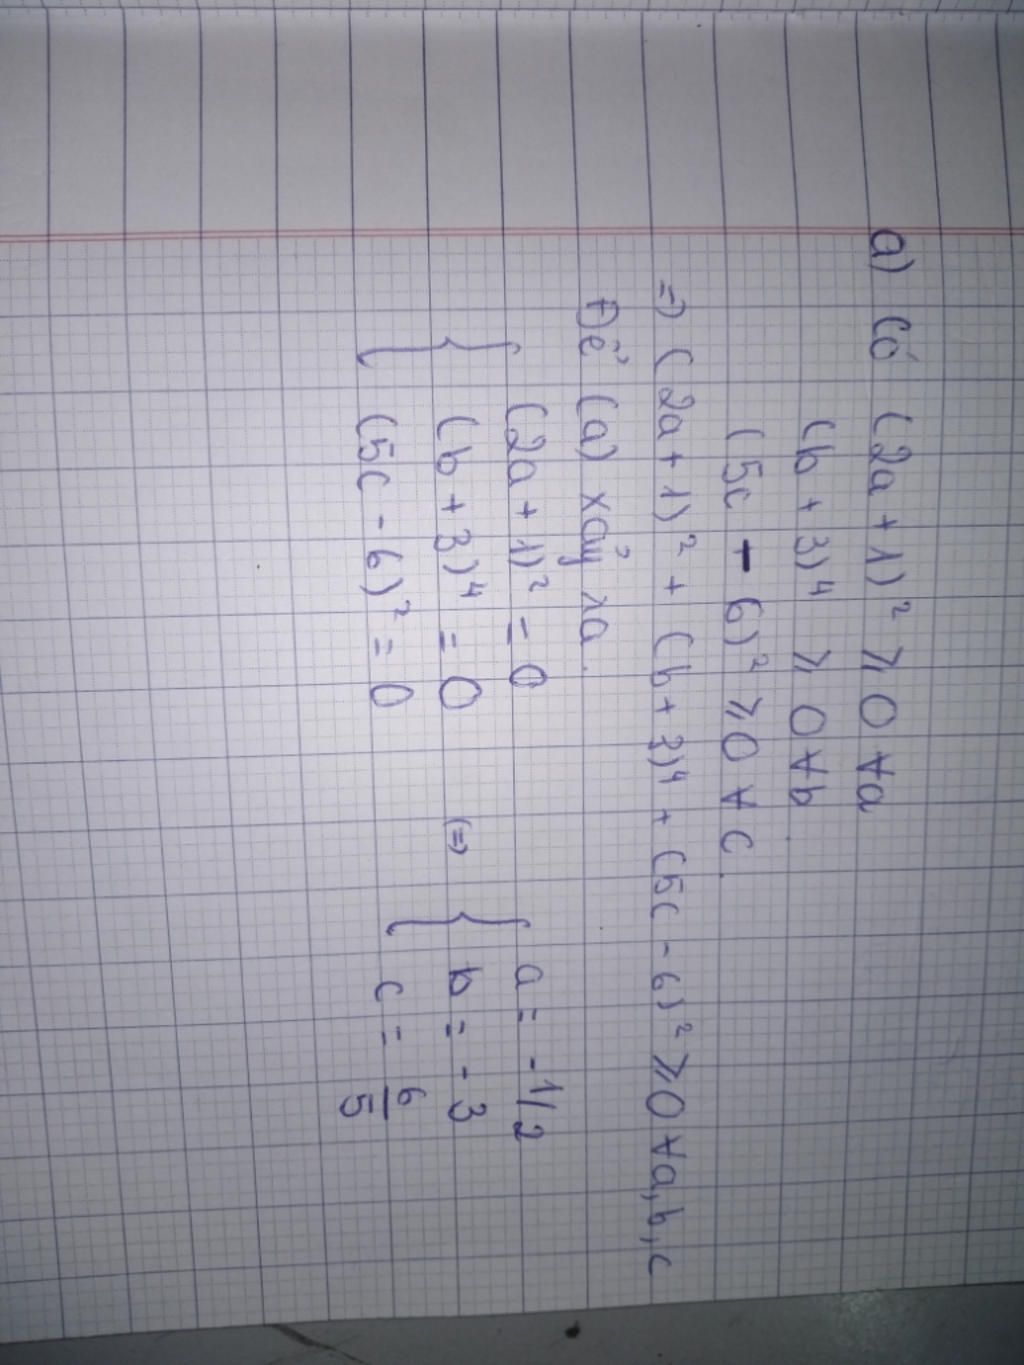 a) Có (2a + 1)² ≥ 0 ∀a
(b + 3)⁴ ≥ 0 ∀b.
(5c - 6)² ≥ 0 ∀ c.
=) (2a + 1)² + (b + 3)⁴ + (5c - 6)² ≥ 0 ∀a, b, c
Để (a) xảy xa.
{ (2a + 1)² = 0
(b + 3)⁴ = 0 (=) { a = -1/2
(5c - 6)² = 0 b = -3
c = 6/5